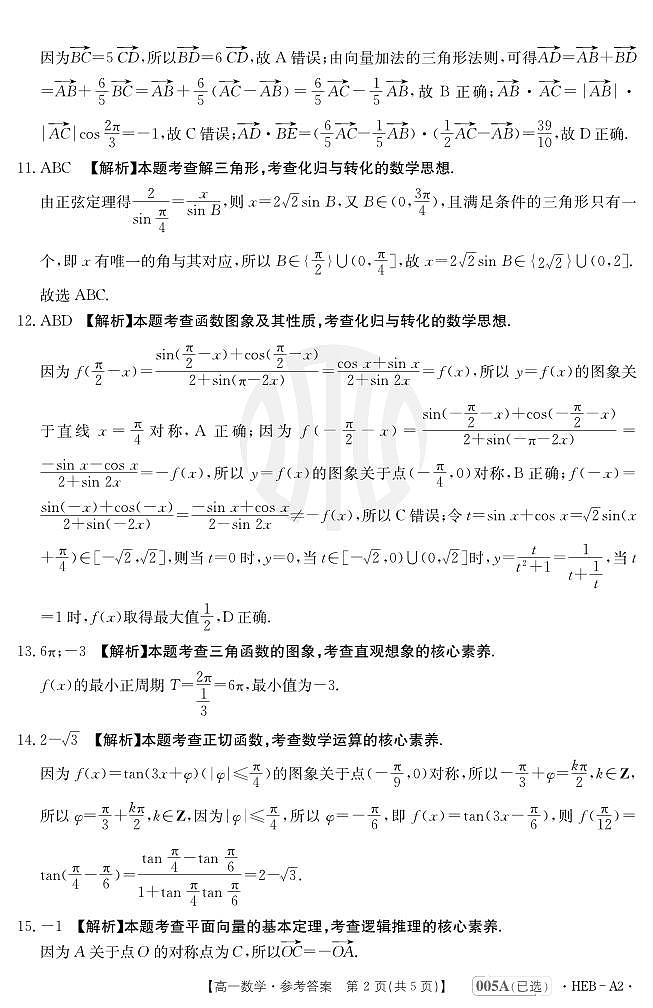 因为$\overrightarrow{BC}=5\overrightarrow{CD}$,所以$\overrightarrow{BD}=6\overrightarrow{CD}$,故 A 错误;由向量加法的三角形法则,可得$\overrightarrow{AD}=\overrightarrow{AB}+\overrightarrow{BD}$
$=\overrightarrow{AB}+\frac{6}{5}\overrightarrow{BC}=\overrightarrow{AB}+\frac{6}{5}(\overrightarrow{AC}-\overrightarrow{AB})=\frac{6}{5}\overrightarrow{AC}-\frac{1}{5}\overrightarrow{AB}$,故 B 正确;$\overrightarrow{AB}\cdot\overrightarrow{AC}=|\overrightarrow{AB}|\cdot$
$|\overrightarrow{AC}|\cos\frac{2\pi}{3}=-1$,故 C 错误;$\overrightarrow{AD}\cdot\overrightarrow{BE}=(\frac{6}{5}\overrightarrow{AC}-\frac{1}{5}\overrightarrow{AB})\cdot(\frac{1}{2}\overrightarrow{AC}-\overrightarrow{AB})=\frac{39}{10}$,故 D 正确.
11. ABC 【解析】本题考查解三角形,考查化归与转化的数学思想.
由正弦定理得$\frac{2}{\sin\frac{\pi}{4}}=\frac{x}{\sin B}$,则 $x=2\sqrt{2}\sin B$,又 $B\in(0,\frac{3\pi}{4})$,且满足条件的三角形只有一
个,即 x 有唯一的角与其对应,所以 $B\in\{\frac{\pi}{2}\}\cup(0,\frac{\pi}{4}]$,故 $x=2\sqrt{2}\sin B\in\{2\sqrt{2}\}\cup(0,2]$.
故选 ABC.
12. ABD 【解析】本题考查函数图象及其性质,考查化归与转化的数学思想.
因为 $f(\frac{\pi}{2}-x)=\frac{\sin(\frac{\pi}{2}-x)+\cos(\frac{\pi}{2}-x)}{2+\sin(\pi-2x)}=\frac{\cos x+\sin x}{2+\sin 2x}=f(x)$,所以 $y=f(x)$的图象关
于直线 $x=\frac{\pi}{4}$ 对称,A 正确;因为 $f(-\frac{\pi}{2}-x)=\frac{\sin(-\frac{\pi}{2}-x)+\cos(-\frac{\pi}{2}-x)}{2+\sin(-\pi-2x)}=$
$\frac{-\sin x-\cos x}{2+\sin 2x}=-f(x)$,所以 $y=f(x)$的图象关于点$(-\frac{\pi}{4},0)$对称,B 正确;$f(-x)=$
$\frac{\sin(-x)+\cos(-x)}{2+\sin(-2x)}=\frac{-\sin x+\cos x}{2-\sin 2x}\neq-f(x)$,所以 C 错误;令 $t=\sin x+\cos x=\sqrt{2}\sin(x$
$+\frac{\pi}{4})\in[-\sqrt{2},\sqrt{2}]$,则当 $t=0$ 时,$y=0$,当 $t\in[-\sqrt{2},0)\cup(0,\sqrt{2}]$时,$y=\frac{t}{t^2+1}=\frac{1}{t+\frac{1}{t}}$,当 $t$
$=1$ 时,$f(x)$取得最大值$\frac{1}{2}$,D 正确.
13. 6π;−3 【解析】本题考查三角函数的图象,考查直观想象的核心素养.
$f(x)$的最小正周期 $T=\frac{2\pi}{\frac{1}{3}}=6\pi$,最小值为−3.
14. $2-\sqrt{3}$ 【解析】本题考查正切函数,考查数学运算的核心素养.
因为 $f(x)=\tan(3x+\varphi)(|\varphi|\leqslant\frac{\pi}{4})$的图象关于点$(-\frac{\pi}{9},0)$对称,所以$-\frac{\pi}{3}+\varphi=\frac{k\pi}{2},k\in\mathbf{Z}$,
所以 $\varphi=\frac{\pi}{3}+\frac{k\pi}{2},k\in\mathbf{Z}$,因为$|\varphi|\leqslant\frac{\pi}{4}$,所以 $\varphi=-\frac{\pi}{6}$,即 $f(x)=\tan(3x-\frac{\pi}{6})$,则 $f(\frac{\pi}{12})=$
$\tan(\frac{\pi}{4}-\frac{\pi}{6})=\frac{\tan\frac{\pi}{4}-\tan\frac{\pi}{6}}{1+\tan\frac{\pi}{4}\tan\frac{\pi}{6}}=2-\sqrt{3}$.
15. −1 【解析】本题考查平面向量的基本定理,考查逻辑推理的核心素养.
因为 A 关于点 O 的对称点为 C,所以$\overrightarrow{OC}=-\overrightarrow{OA}$.
【高一数学·参考答案 第 2 页(共 5 页)】 005A(已选) ·HEB−A2·